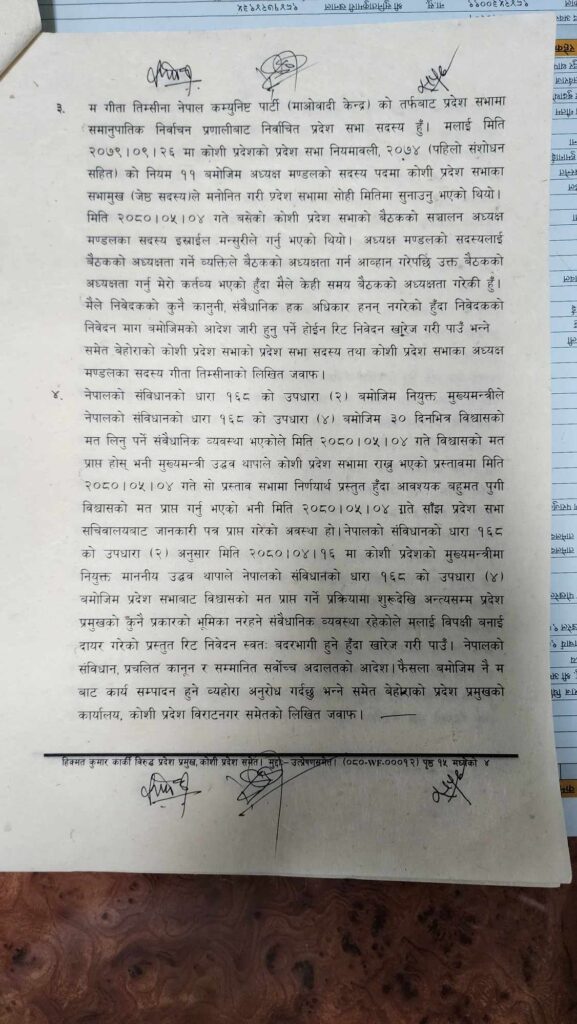 ३. म गीता तिम्सीना नेपाल कम्युनिष्ट पार्टी (माओवादी केन्द्र) को तर्फबाट प्रदेश सभामा
समानुपातिक निर्वाचन प्रणालीबाट निर्वाचित प्रदेश सभा सदस्य हुँ। मलाई मिति
२०७९।०९।२६ मा कोशी प्रदेशको प्रदेश सभा नियमावली, २०७४ (पहिलो संशोधन
सहित) को नियम ११ बमोजिम अध्यक्ष मण्डलको सदस्य पदमा कोशी प्रदेश सभाका
सभामुख (जेष्ठ सदस्य)ले मनोनित गरी प्रदेश सभामा सोही मितिमा सुनाउनु भएको थियो।
मिति २०८०।०५।०४ गते बसेको कोशी प्रदेश सभाको बैठकको सञ्चालन अध्यक्ष
मण्डलका सदस्य इस्राईल मन्सुरीले गर्नु भएको थियो। अध्यक्ष मण्डलको सदस्यलाई
बैठकको अध्यक्षता गर्ने व्यक्तिले बैठकको अध्यक्षता गर्न आव्हान गरेपछि उक्त बैठकको
अध्यक्षता गर्नु मेरो कर्तव्य भएको हुँदा मैले केही समय बैठकको अध्यक्षता गरेकी हुँ।
मैले निवेदकको कुनै कानुनी, संवैधानिक हक अधिकार हनन् नगरेको हुँदा निवेदकको
निवेदन माग बमोजिमको आदेश जारी हुनु पर्ने होईन रिट निवेदन खारेज गरी पाउँ भन्ने
समेत बेहोराको कोशी प्रदेश सभाको प्रदेश सभा सदस्य तथा कोशी प्रदेश सभाका अध्यक्ष
मण्डलका सदस्य गीता तिम्सीनाको लिखित जवाफ।
४. नेपालको संविधानको धारा १६८ को उपधारा (२) बमोजिम नियुक्त मुख्यमन्त्रीले
नेपालको संविधानको धारा १६८ को उपधारा (४) बमोजिम ३० दिनभित्र विश्वासको
मत लिनु पर्ने संवैधानिक व्यवस्था भएकोले मिति २०८०।०५।०४ गते विश्वासको मत
प्राप्त होस् भनी मुख्यमन्त्री उद्धव थापाले कोशी प्रदेश सभामा राख्नु भएको प्रस्तावमा मिति
२०८०।०५।०४ गते सो प्रस्ताव सभामा निर्णयार्थ प्रस्तुत हुँदा आवश्यक बहुमत पुगी
विश्वासको मत प्राप्त गर्नु भएको भनी मिति २०८०।०५।०४ गते साँझ प्रदेश सभा
सचिवालयबाट जानकारी पत्र प्राप्त गरेको अवस्था हो। नेपालको संविधानको धारा १६८
को उपधारा (२) अनुसार मिति २०८०।०४।१६ मा कोशी प्रदेशको मुख्यमन्त्रीमा
नियुक्त माननीय उद्धव थापाले नेपालको संविधानको धारा १६८ को उपधारा (४)
बमोजिम प्रदेश सभाबाट विश्वासको मत प्राप्त गर्ने प्रक्रियामा शुरूदेखि अन्त्यसम्म प्रदेश
प्रमुखको कुनै प्रकारको भूमिका नरहने संवैधानिक व्यवस्था रहेकोले मलाई विपक्षी बनाई
दायर गरेको प्रस्तुत रिट निवेदन स्वतः बदरभागी हुने हुँदा खारेज गरी पाउँ। नेपालको
संविधान, प्रचलित कानून र सम्मानित सर्वोच्च अदालतको आदेश। फैसला बमोजिम नै म
बाट कार्य सम्पादन हुने व्यहोरा अनुरोध गर्दछु भन्ने समेत बेहोराको प्रदेश प्रमुखको
कार्यालय, कोशी प्रदेश विराटनगर समेतको लिखित जवाफ।
हिक्मत कुमार कार्की विरुद्ध प्रदेश प्रमुख, कोशी प्रदेश समेत। मुद्दाः- उत्प्रेषणसमेत। (०८०-WF-०००१२) पृष्ठ १५ मध्येको ४